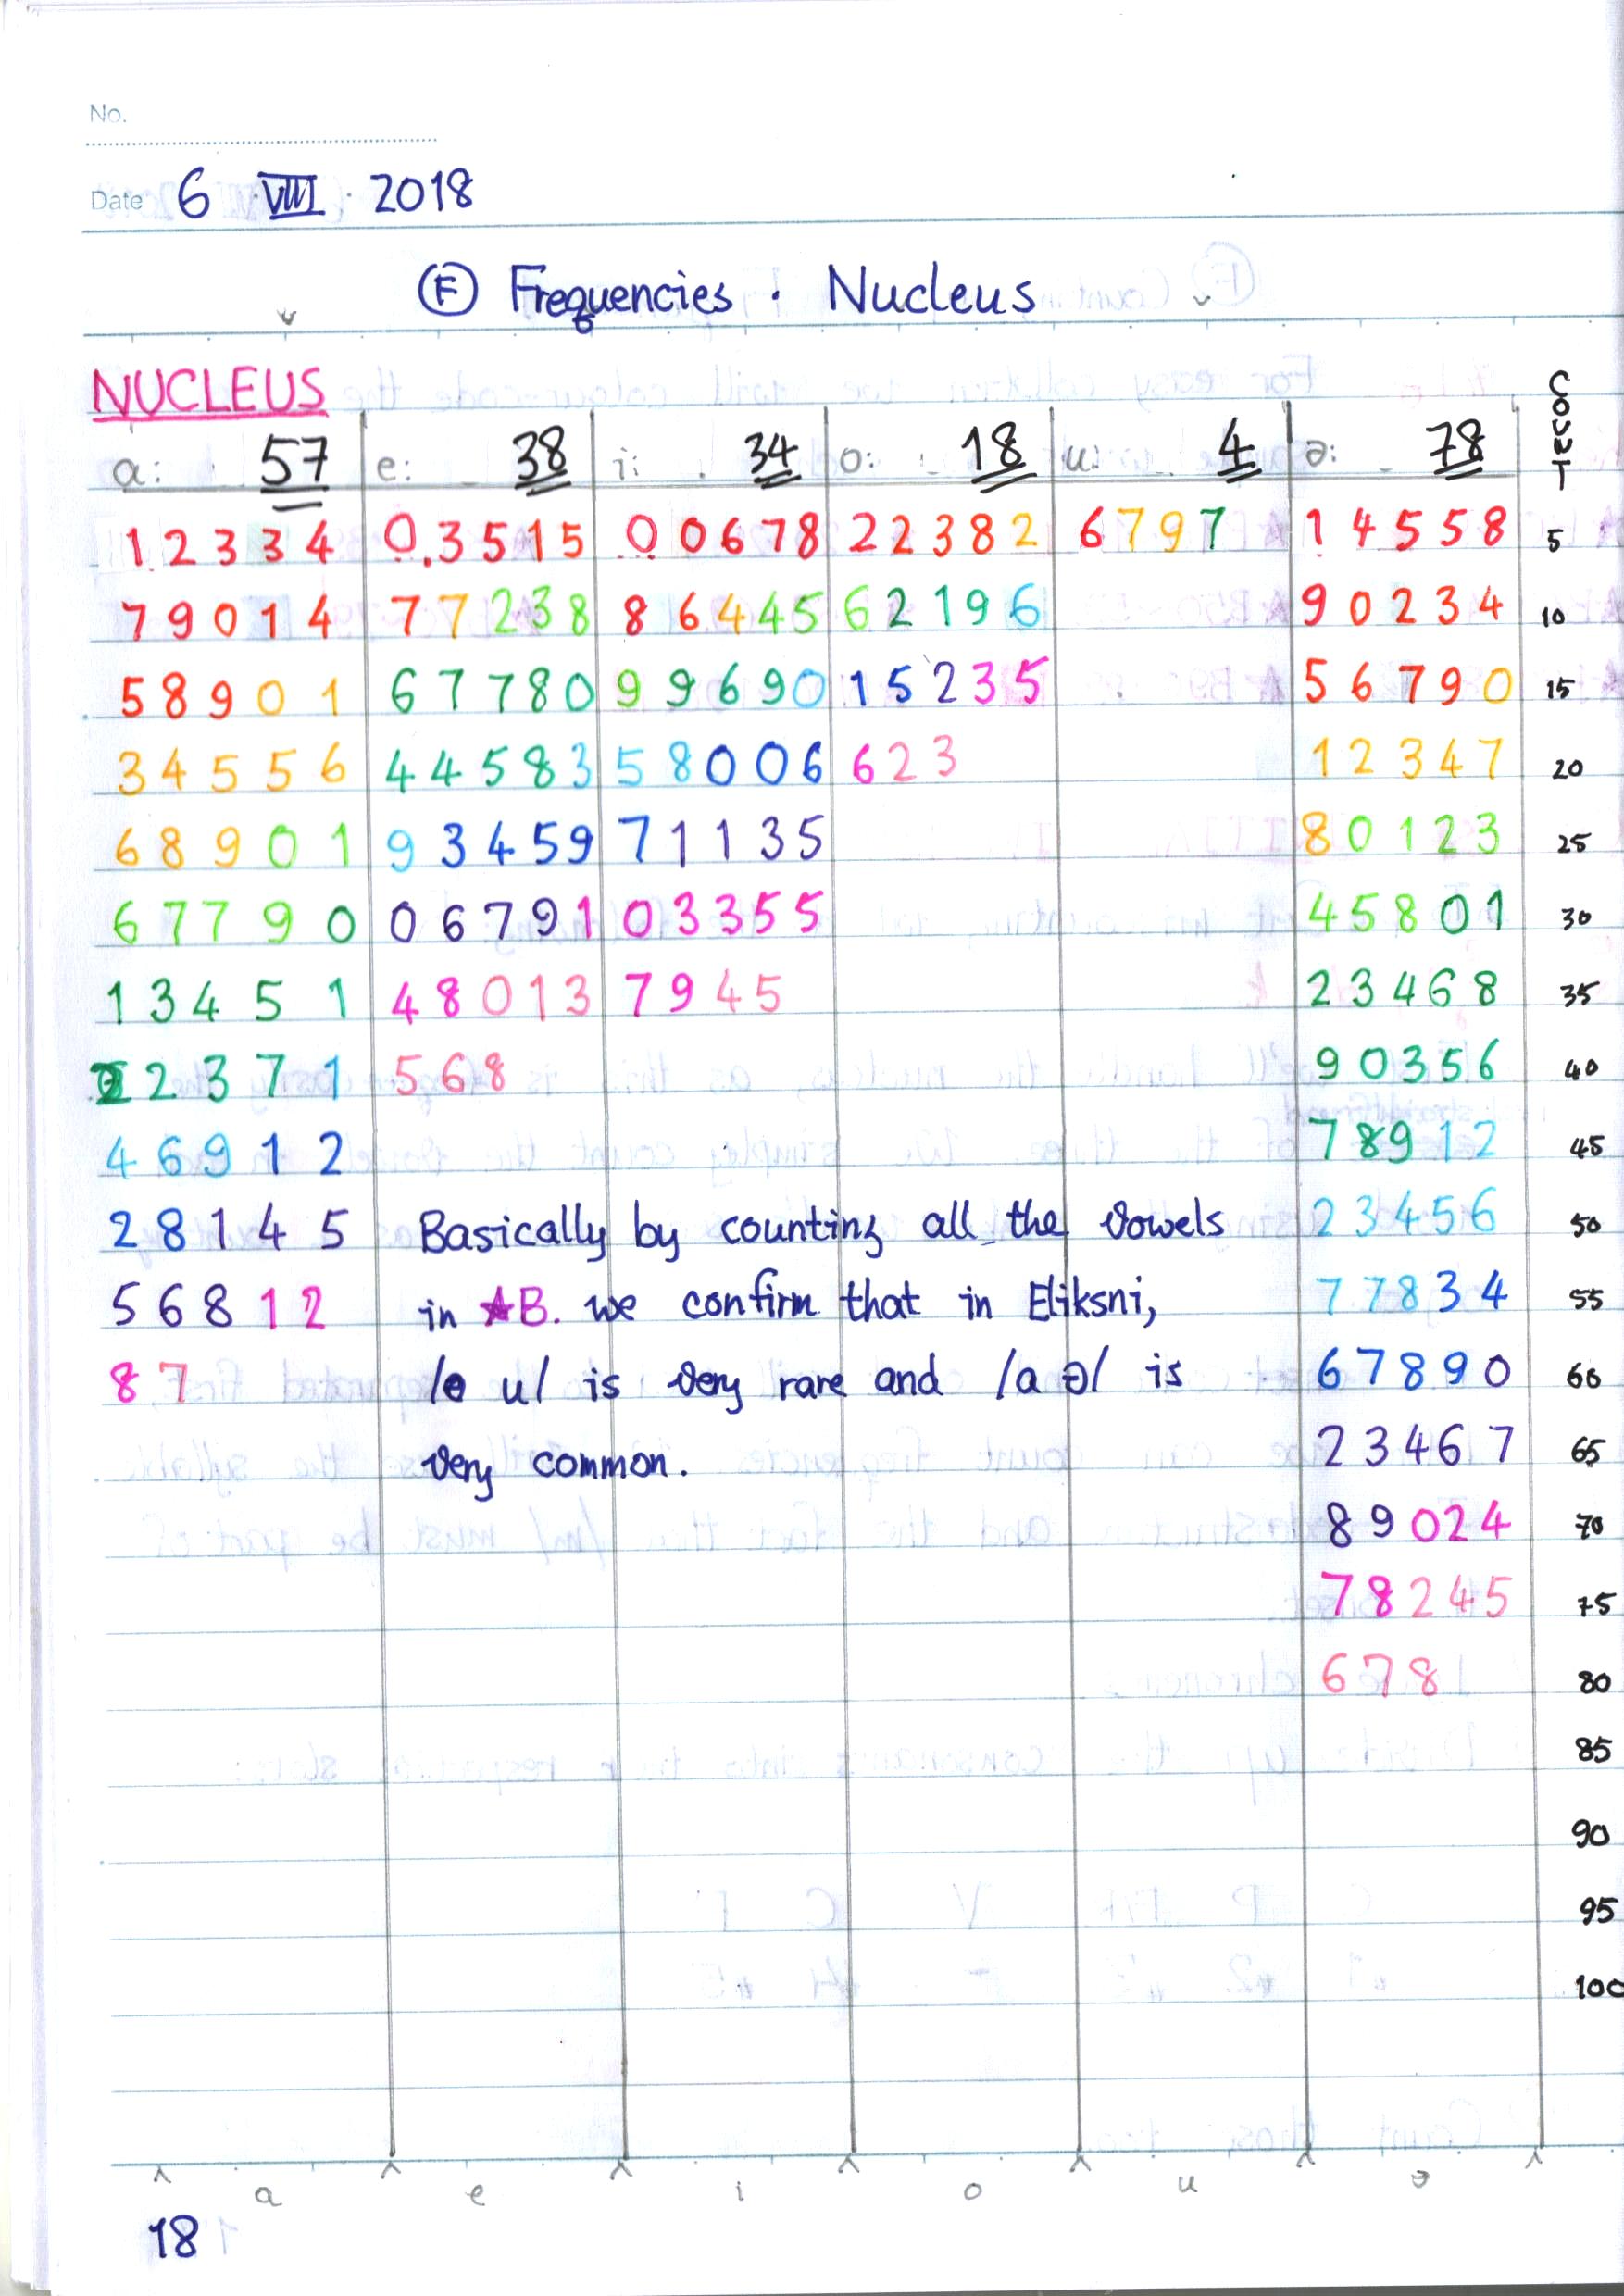 No.
Date 6 · VIII · 2018
Ⓕ Frequencies · Nucleus
NUCLEUS
a: 57 e: 38 i: 34 o: 18 u: 4 ə: 78 COUNT
1 2 3 3 4 0 3 5 1 5 0 0 6 7 8 2 2 3 8 2 6 7 9 7 1 4 5 5 8 5
7 9 0 1 4 7 7 2 3 8 8 6 4 4 5 6 2 1 9 6 9 0 2 3 4 10
5 8 9 0 1 6 7 7 8 0 9 9 6 9 0 1 5 2 3 5 5 6 7 9 0 15
3 4 5 5 6 4 4 5 8 3 5 8 0 0 6 6 2 3 1 2 3 4 7 20
6 8 9 0 1 9 3 4 5 9 7 1 1 3 5 8 0 1 2 3 25
6 7 7 9 0 0 6 7 9 1 0 3 3 5 5 4 5 8 0 1 30
1 3 4 5 1 4 8 0 1 3 7 9 4 5 2 3 4 6 8 35
2 2 3 7 1 5 6 8 9 0 3 5 6 40
4 6 9 1 2 7 8 9 1 2 45
2 8 1 4 5 Basically by counting all the vowels 2 3 4 5 6 50
5 6 8 1 2 in ★B. we confirm that in Eliksni, 7 7 8 3 4 55
8 7 /o u/ is very rare and /a ə/ is 6 7 8 9 0 60
very common. 2 3 4 6 7 65
8 9 0 2 4 70
7 8 2 4 5 75
6 7 8 80
85
90
95
100
a e i o u ə
18